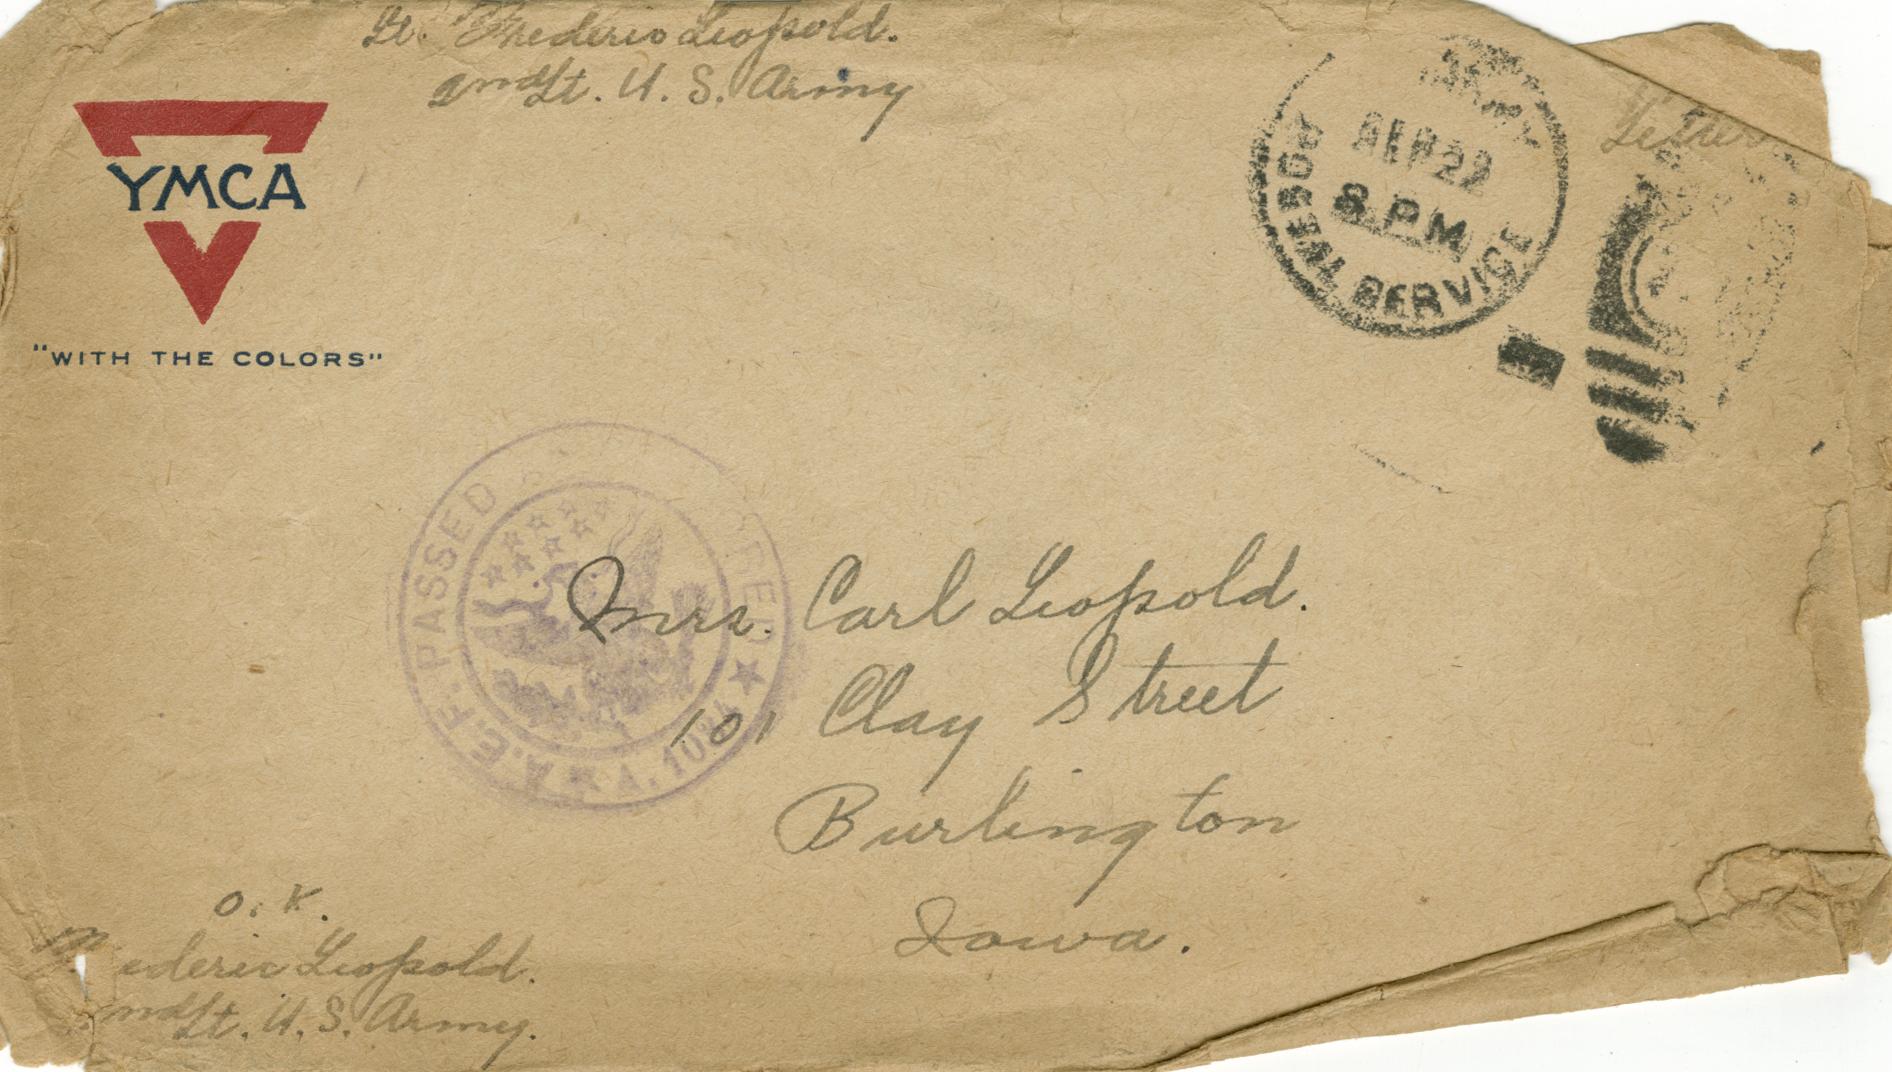 Lt. Frederic Leopold.
2nd Lt. U. S. Army
YMCA
"WITH THE COLORS"
SEP 22
8 PM
SERVICE
A.E.F. PASSED
A. 10
Mrs. Carl Leopold.
101 Clay Street
Burlington
Iowa.
O. K.
ederic Leopold.
nd Lt. U. S. Army.